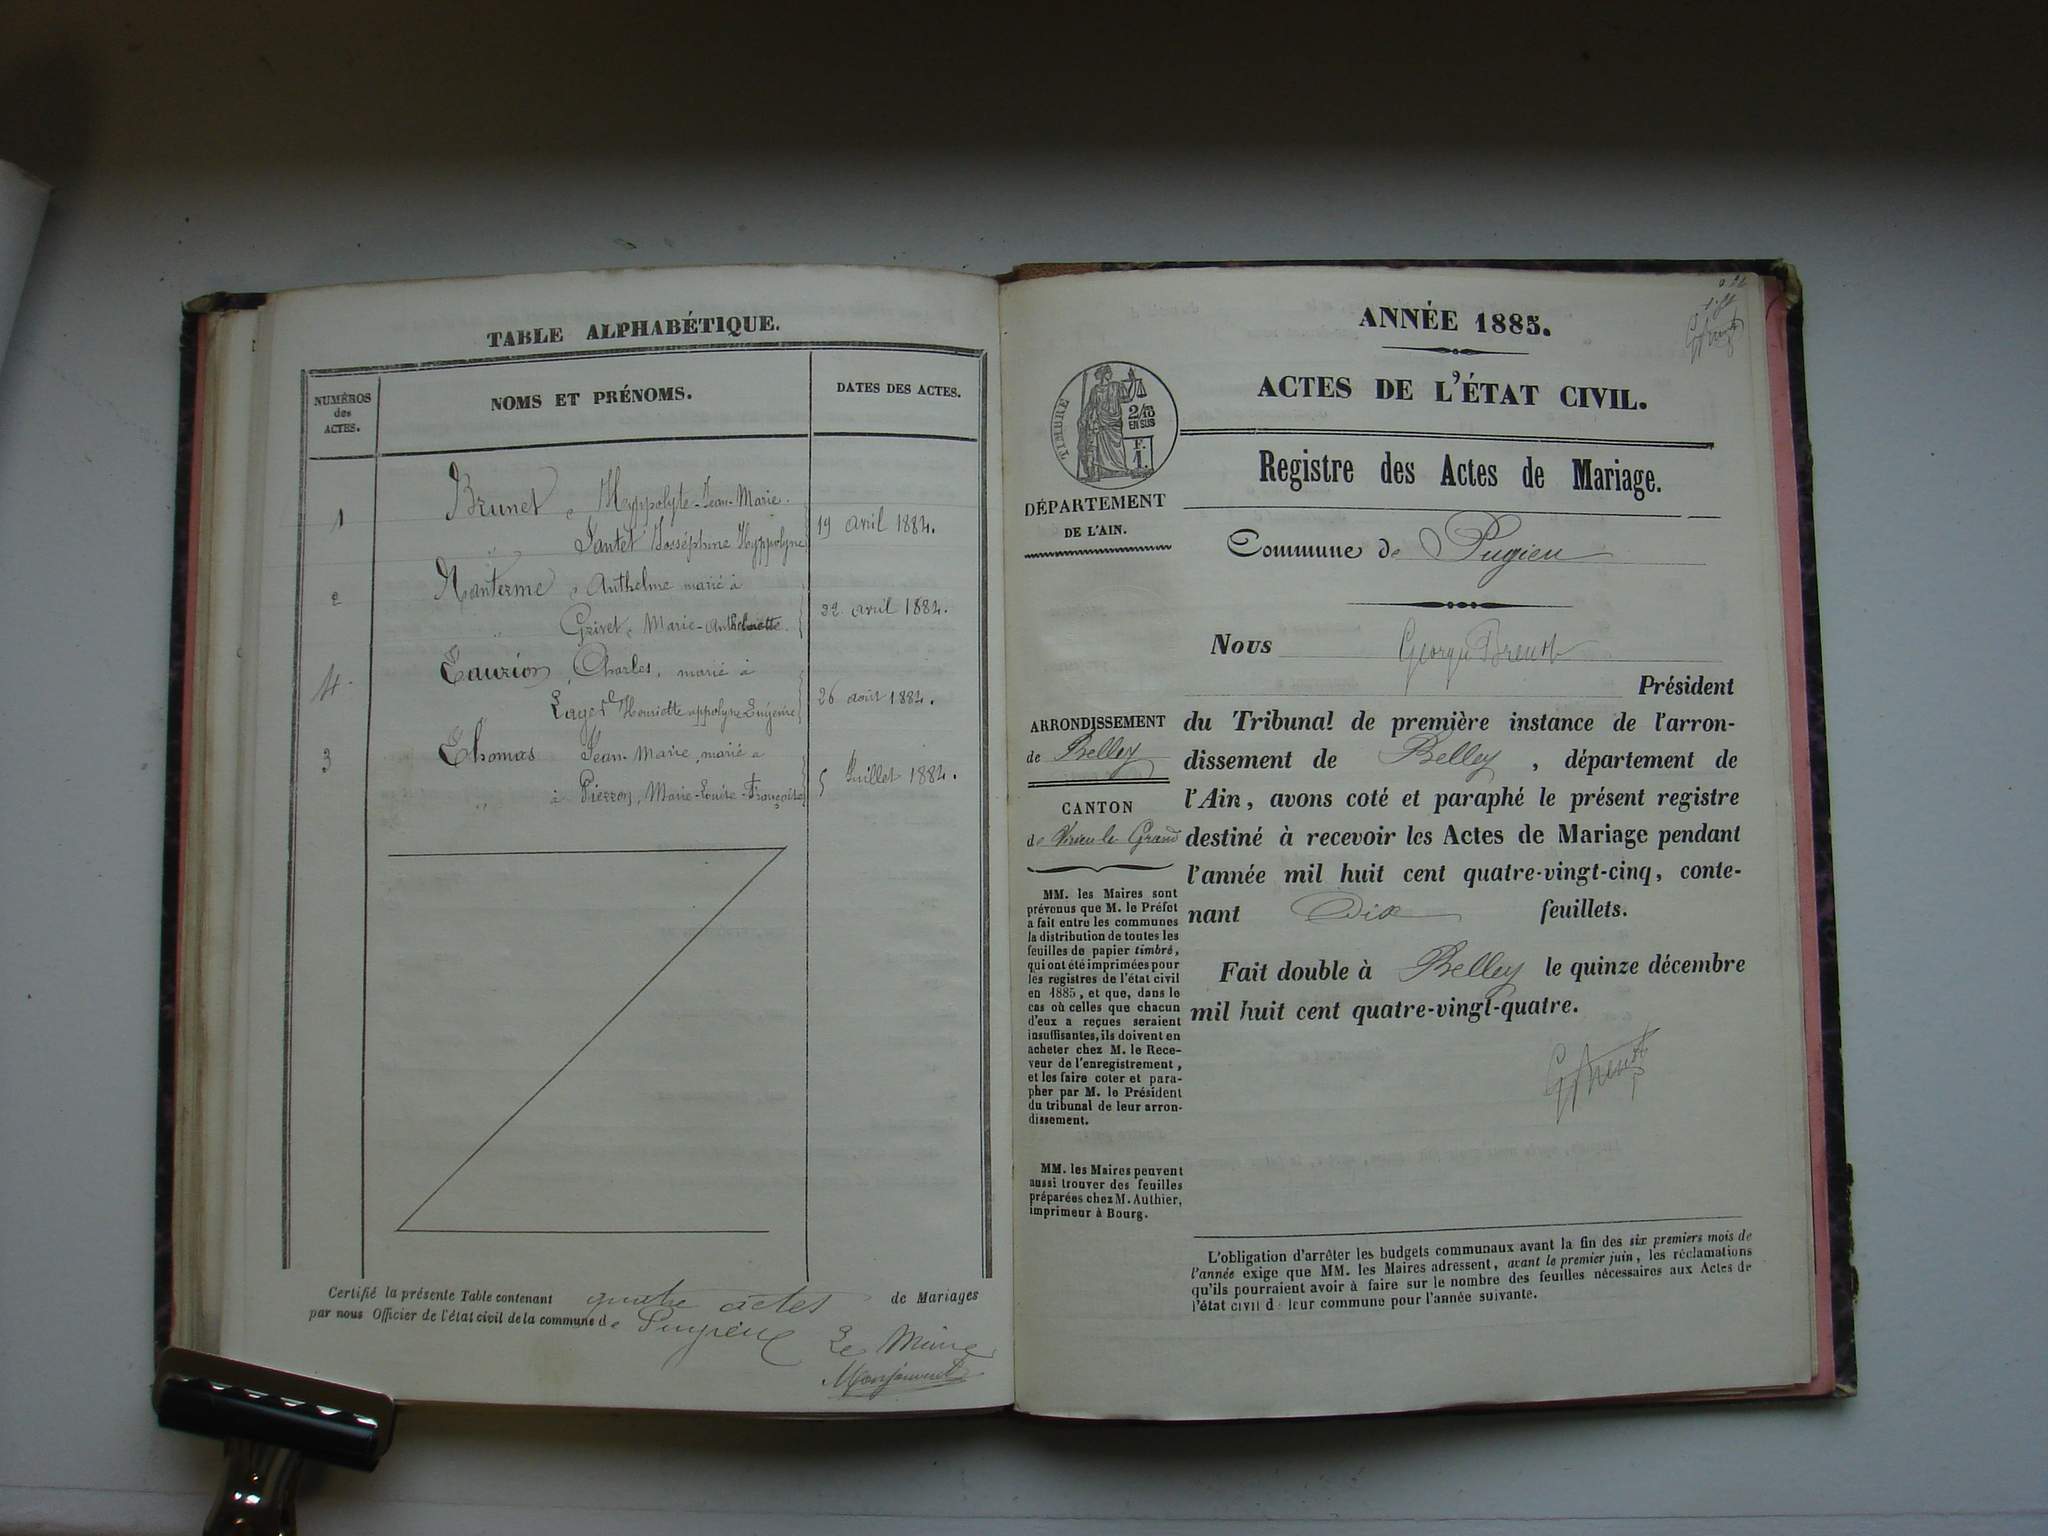 TABLE ALPHABÉTIQUE.
NUMÉROS
des
ACTES.
NOMS ET PRÉNOMS.
DATES DES ACTES.
1
Brunet, Hyppolyte-Jean-Marie.
" Jantet Josséphine Hyppolyne
19 avril 1884.
2
Nanterme, Anthelme marié à
" Grivet, Marie-Anthelmette.
22 avril 1884.
4.
Charles, marié à
Henriette Eugénie
26 août 1884.
3
Thomas Jean-Marie, marié a
" à Pierron, Marie-Louise-Françoise
5 Juillet 1884.
Certifié la présente Table contenant quatre actes de Mariages
par nous Officier de l'état civil de la commune de Pugieu
Le Maire
ANNÉE 1885.
ACTES DE L'ÉTAT CIVIL.
TIMBRE
2/10
EN SUS
F.
1.
Registre des Actes de Mariage.
DÉPARTEMENT
DE L'AIN.
Commune de Pugieu
Nous Georges
Président
du Tribunal de première instance de l'arron-
dissement de Belley, département de
l'Ain, avons coté et paraphé le présent registre
destiné à recevoir les Actes de Mariage pendant
l'année mil huit cent quatre-vingt-cinq, conte-
nant Dix feuillets.
Fait double à Belley le quinze décembre
mil huit cent quatre-vingt-quatre.
ARRONDISSEMENT
de Belley
CANTON
de Virieu le Grand
MM. les Maires sont
prévenus que M. le Préfet
a fait entre les communes
la distribution de toutes les
feuilles de papier timbré,
qui ont été imprimées pour
les registres de l'état civil
en 1885, et que, dans le
cas où celles que chacun
d'eux a reçues seraient
insuffisantes, ils doivent en
acheter chez M. le Rece-
veur de l'enregistrement,
et les faire coter et para-
pher par M. le Président
du tribunal de leur arron-
dissement.
MM. les Maires peuvent
aussi trouver des feuilles
préparées chez M. Authier,
imprimeur à Bourg.
L'obligation d'arrêter les budgets communaux avant la fin des six premiers mois de
l'année exige que MM. les Maires adressent, avant le premier juin, les réclamations
qu'ils pourraient avoir à faire sur le nombre des feuilles nécessaires aux Actes de
l'état civil d leur commune pour l'année suivante.